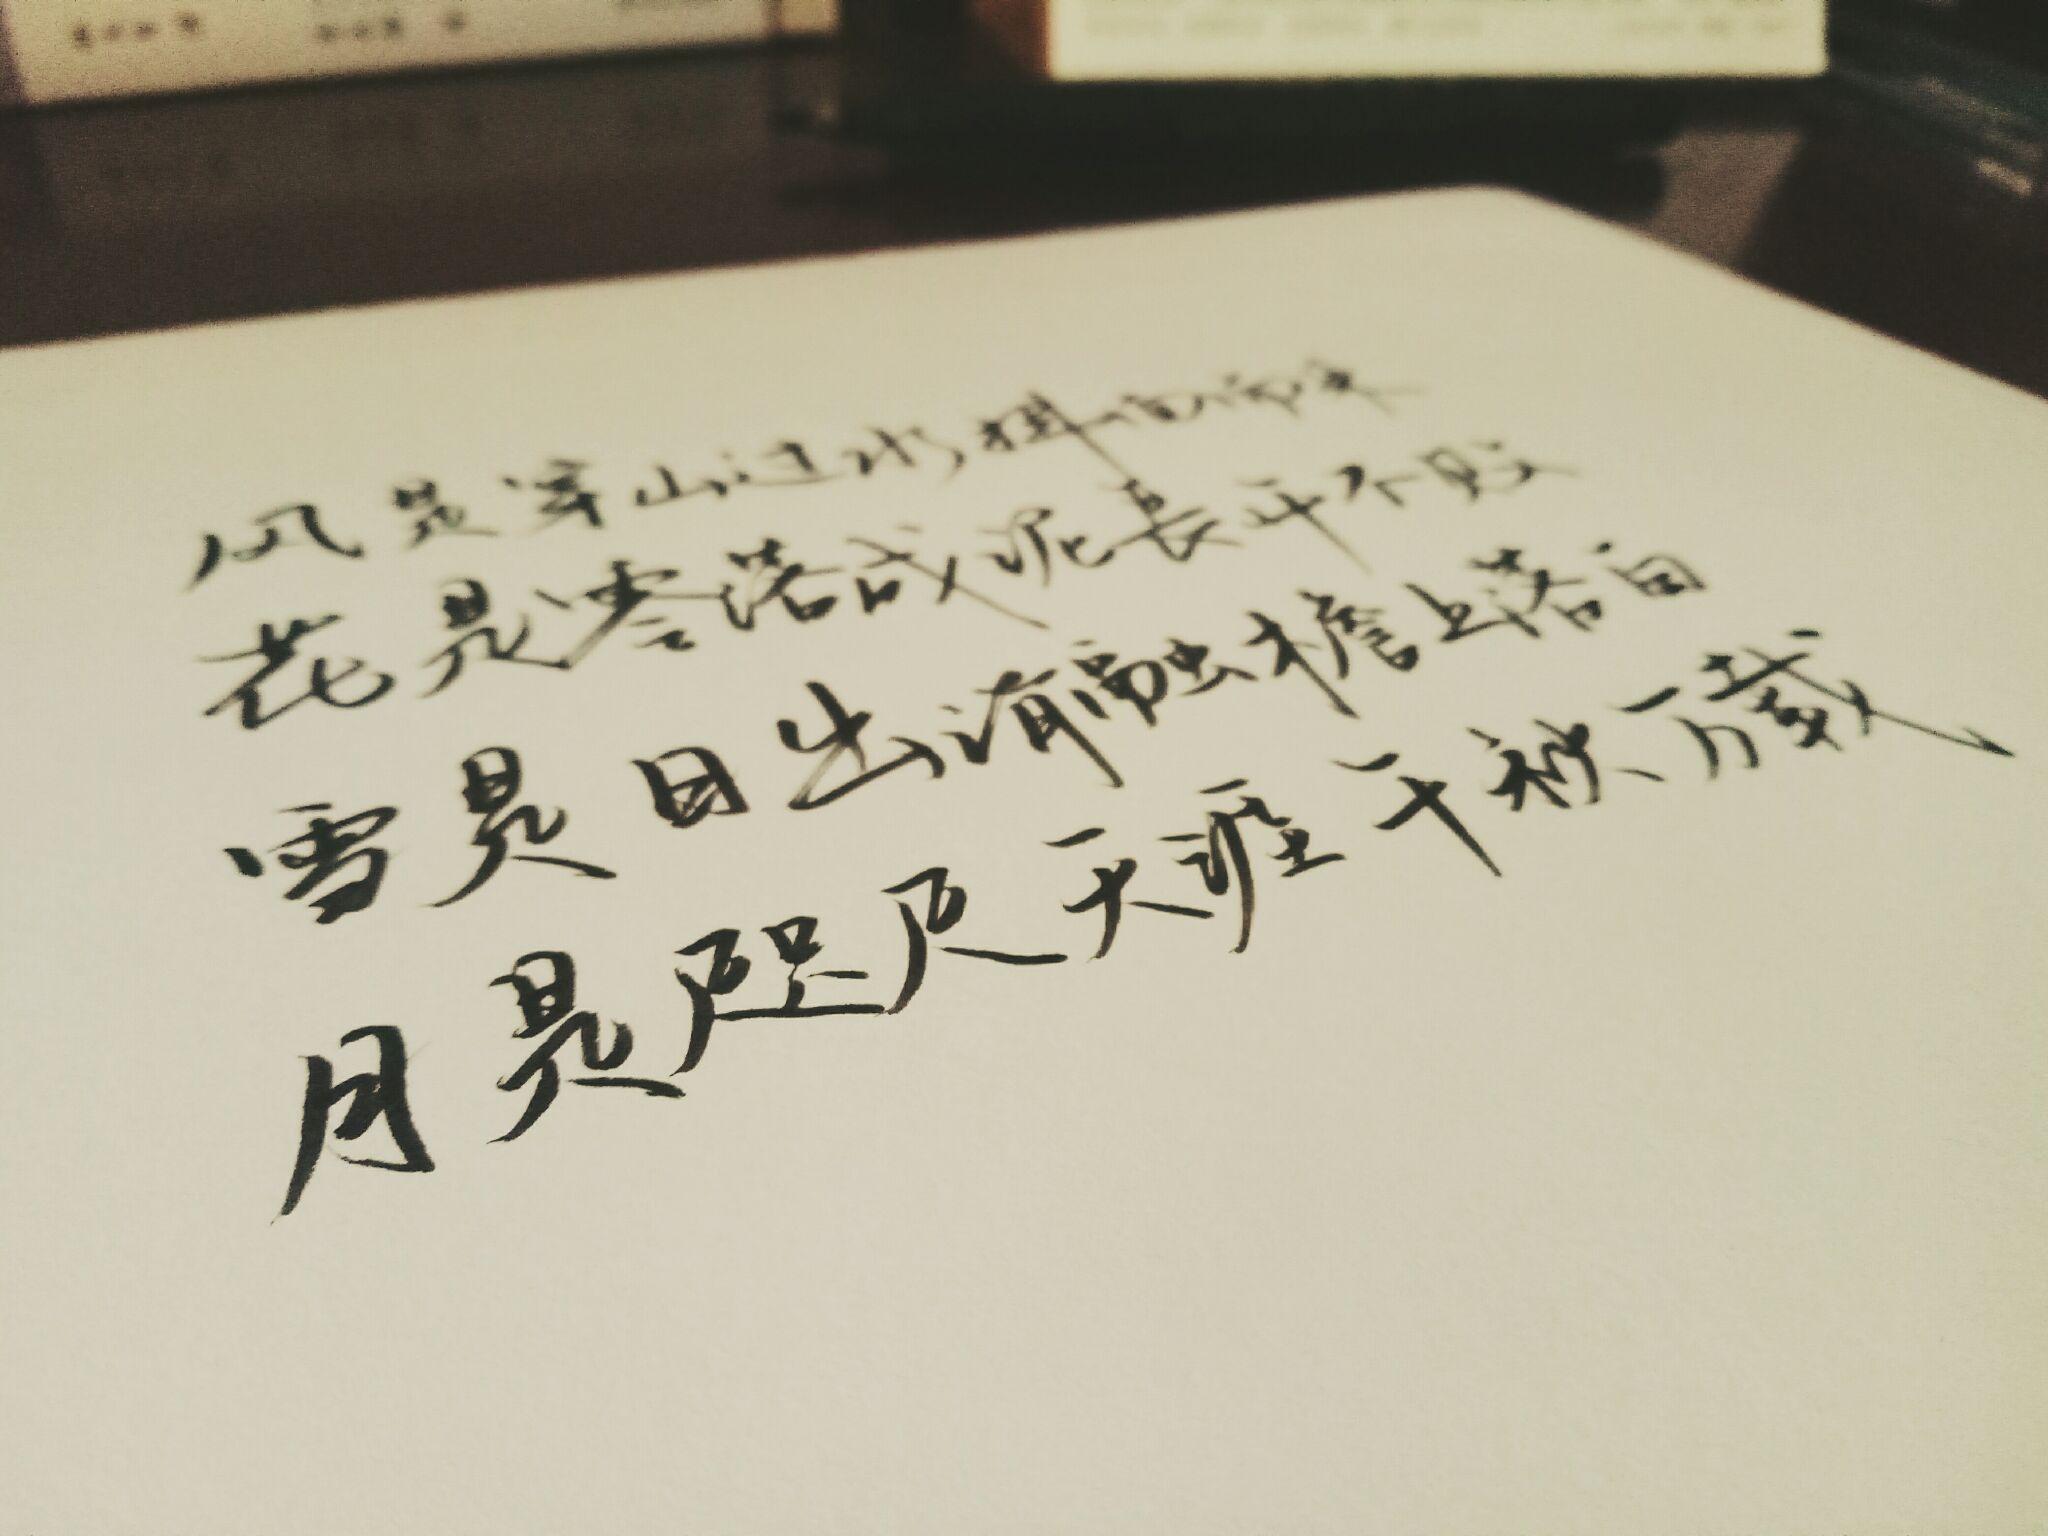 风是穿山过水拂面而来
花是零落成泥長开不败
雪是日出消融檐上落白
月是咫尺天涯千秋万载